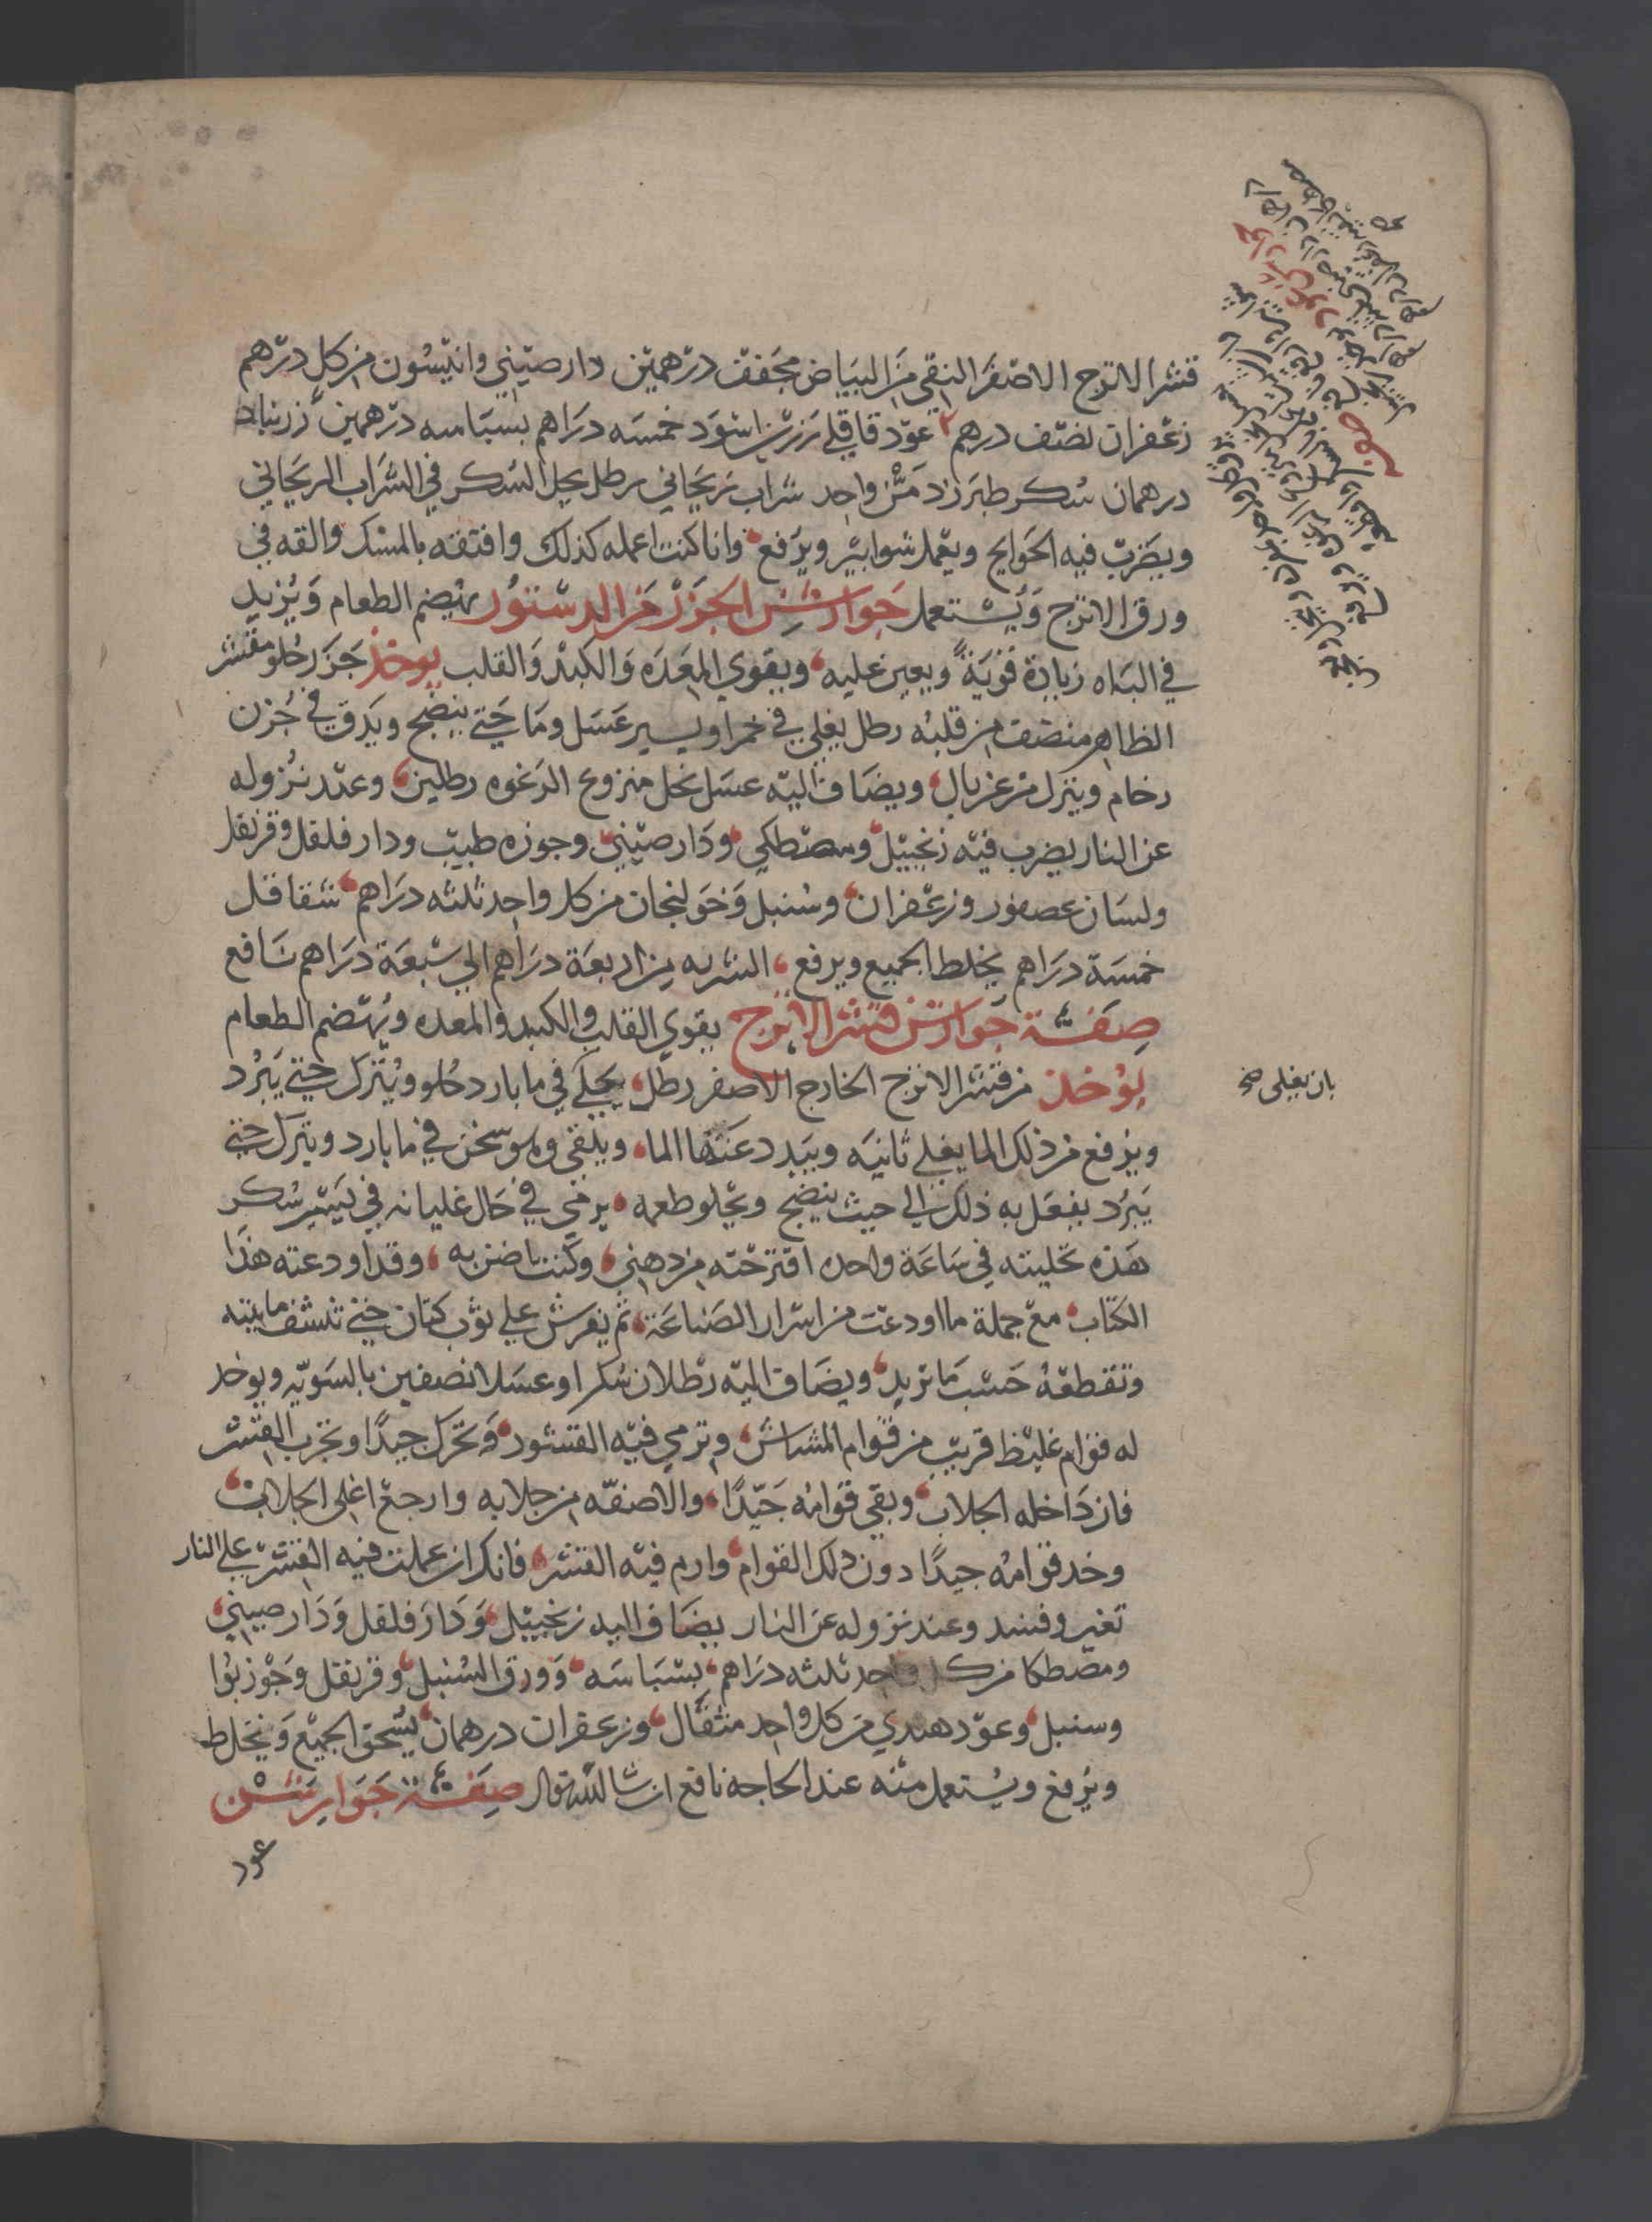 قشر الاترج الاصفر النقي من البياض مجفف درهمين دار صيني وانيسون من كل درهم
زعفران نصف درهم عود قاقلي زرشك اسود خمسه دراهم بسباسه درهمين زرنباد
درهمان سكر طبرزد من واحد شراب ريحاني رطل يحل السكر في الشراب الريحاني
ويضرب فيه الحوايج ويعمل شوابير ويرفع وانا كنت اعمله كذلك وافتقه بالمسك والقه في
ورق الاترج ويستعمل جوارشن الجزر من الدستور يهضم الطعام ويزيد
في الباه زيادة قوية ويعين عليه ويقوي المعده والكبد والقلب يوخذ جزر حلو مقشر
الظاهر منصف من قلبه رطل يغلي في خمر او يسير عسل وما حتي ينضج ويدق في جرن
رخام وينزل من غربال ويضاف اليه عسل نحل منزوع الرغوه رطلين وعند نزوله
عن النار يضرب فيه زنجبيل ومصطكي ودار صيني وجوزه طيب ودار فلفل وقرنفل
ولسان عصفور وزعفران وسنبل وخولنجان من كل واحد ثلثه دراهم شقاقل
خمسة دراهم يخلط الجميع ويرفع الشربه من اربعة دراهم الي سبعة دراهم نافع
صفة جوارشن قشر الاترج يقوي القلب والكبد والمعده ويهضم الطعام
يؤخذ من قشر الاترج الخارج الاصفر رطل يحلي في ما بارد حلو ويترك حتي يبرد
بان يغلى صح
ويرفع من ذلك الما يغلي ثانيه ويبدد عنها الما ويلقي وهو سخن في ما بارد ويترك حتي
يبرد يفعل به ذلك الي حيث ينضج ويحلو طعمه يرمي في حال غليانه في يسير سكر
هذه تحليته في ساعة واحده اقترحته من ذهني وكنت اضن به وقد اودعته هذا
الكتاب مع جملة ما اودعت من اسرار الصناعة ثم يفرش علي ثوب كتان حتي تنشف مايته
وتقطعه حسب ما تريد ويضاف اليه رطلان سكر او عسل نصفين بالسويه ويوخد
له قوام غليظ قريب من قوام المشاش وترمي فيه القشور وتحرك جيدا وتجرب القشر
فان داخله الجلاب وبقي قوامه جيدا والا صفه من جلابه وارجع اغلي الجلاب
وخد قوامه جيدا دون ذلك القوام وارم فيه القشر فانك ان عملت فيه القشر علي النار
تغير وفسد وعند نزوله عن النار يضاف اليه زنجبيل ودار فلفل ودار صيني
ومصطكا من كل واحد ثلثه دراهم بسباسه وورق السنبل وقرنفل وجوز بوا
وسنبل وعود هندي من كل واحد مثقال وزعفران درهمان يسحق الجميع ويخلط
ويرفع ويستعمل منه عند الحاجه نافع ان شا الله تعالي صفة جوارشن
عود